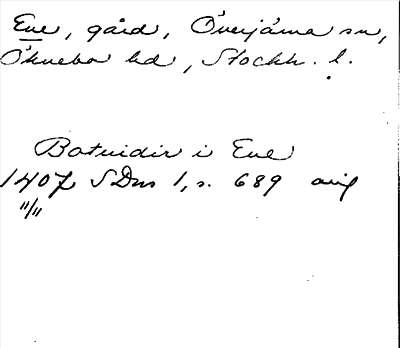 Eue, gård, Överjärna sn,
Öknebo hd, Stockh. l.
Botuidir i Eue
1407 SDns 1, s. 689 orig
11/11